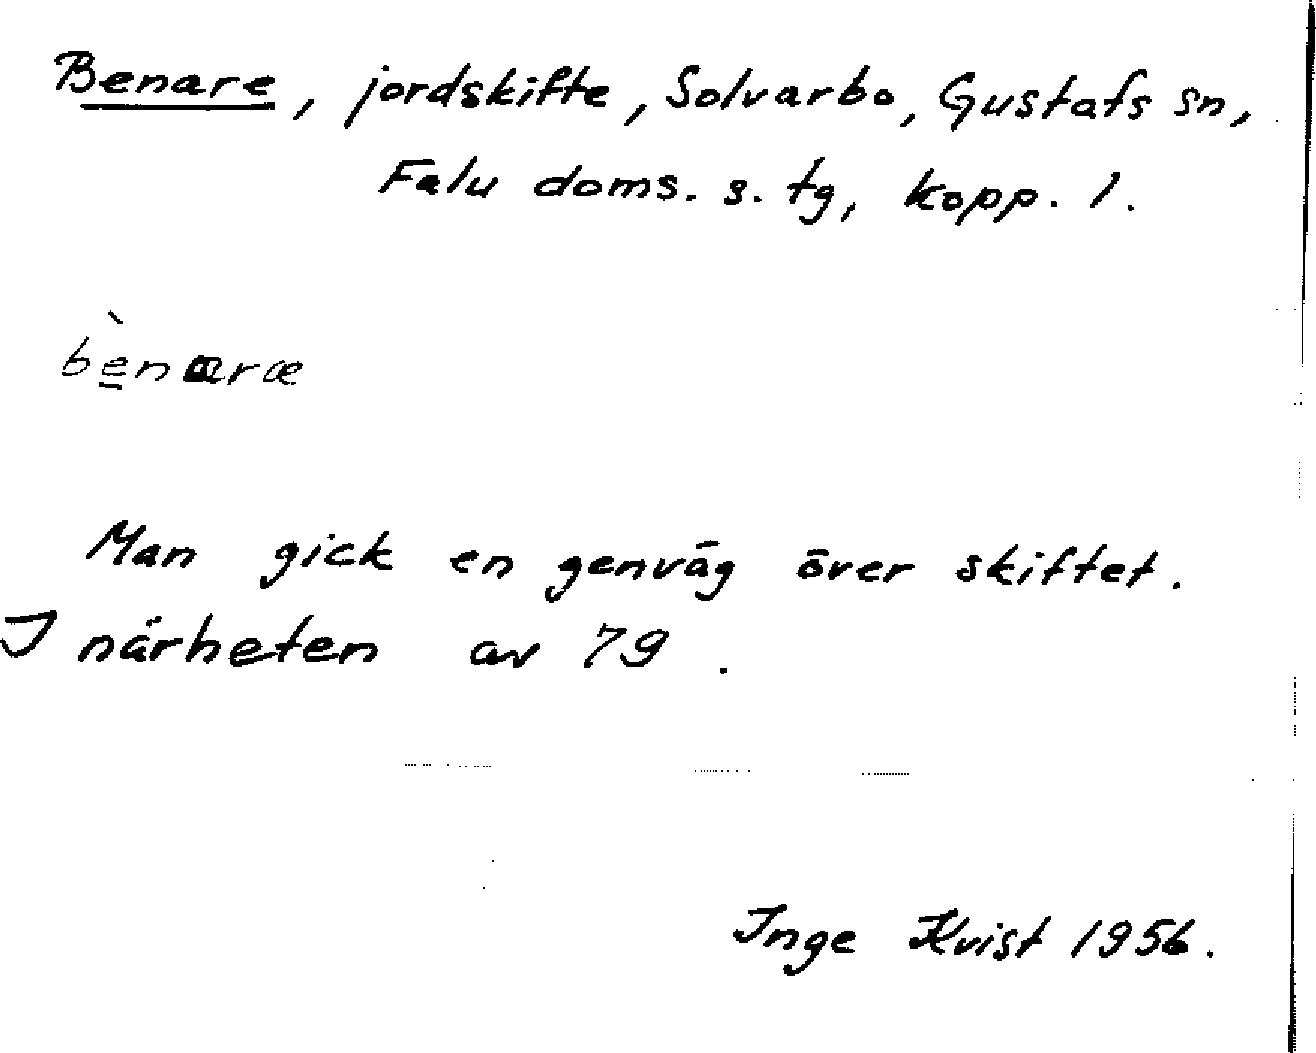 Benare, jordskifte, Solvarbo, Gustafs sn,
Falu doms. s. tg, Kopp. l.
bènaræ
Man gick en genväg över skiftet.
I närheten av 79.
Inge Kvist 1956.